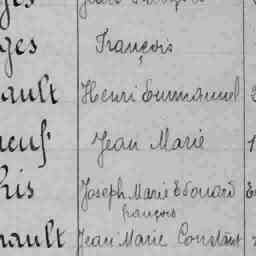 ges François
ault Henri Emmanuel
neuf Jean Marie
his Joseph Marie Edouard
françois
ault Jean Marie Constant